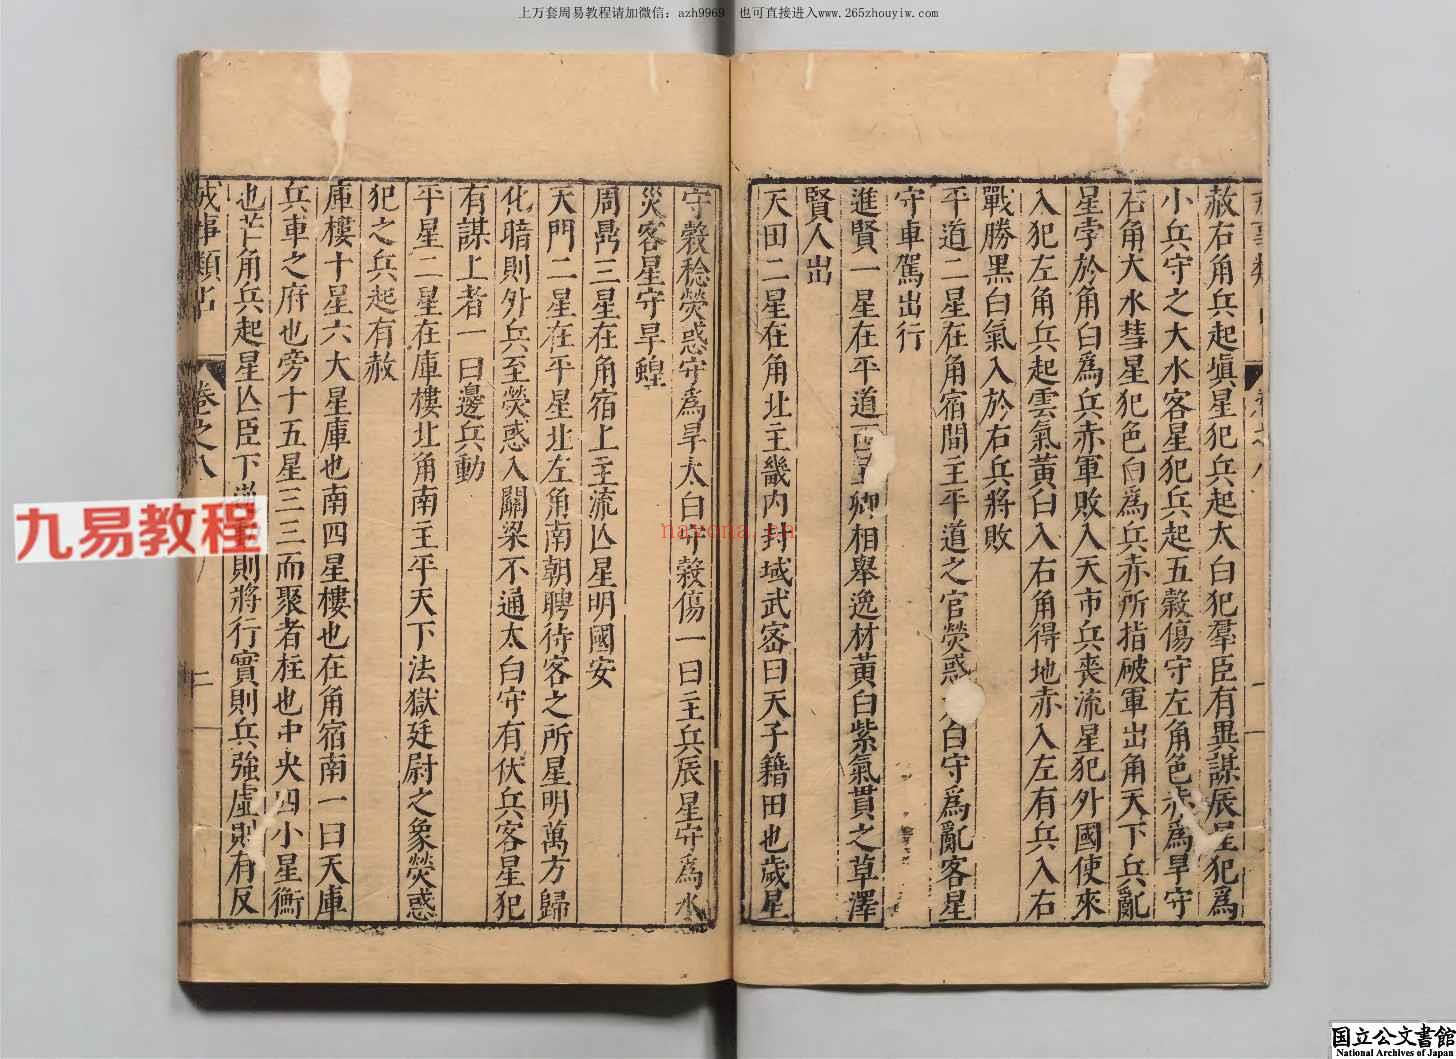 上万套周易教程请加微信：azh9969 也可直接进入www.265zhouyiw.com
赦右角兵起塡星犯兵起太白犯羣臣有異謀辰星犯爲
小兵守之大水客星犯兵起五穀傷守左角色赤爲旱守
右角大水彗星犯色白爲兵赤所指破軍出角天下兵亂
星孛於角白爲兵赤軍敗入天市兵喪流星犯外國使來
入犯左角兵起雲氣黃白入右角得地赤入左有兵入右
戰勝黑白氣入於右兵將敗
平道二星在角宿間主平道之官熒惑太白守爲亂客星
守車駕出行
進賢一星在平道西主卿相舉逸材黃白紫氣貫之草澤
賢人出
天田二星在角北主畿内封域武宻曰天子籍田也歲星
守穀稔熒惑守爲旱太白守穀傷一曰主兵辰星守爲水
災客星守旱蝗
周鼎三星在角宿上主流亾星明國安
天門二星在平星北左角南朝聘待客之所星明萬方歸
化暗則外兵至熒惑入關梁不通太白守有伏兵客星犯
有謀上者一曰邊兵動
平星二星在庫樓北角南主平天下法獄廷尉之象熒惑
犯之兵起有赦
庫樓十星六大星庫也南四星樓也在角宿南一曰天庫
兵車之府也旁十五星三三而聚者柱也中央四小星衡
也芒角兵起星亾臣下 則將行實則兵強虛則有反
戎事類占 卷之八 二
九易教程
nayona.cn
国立公文書館
National Archives of Japan